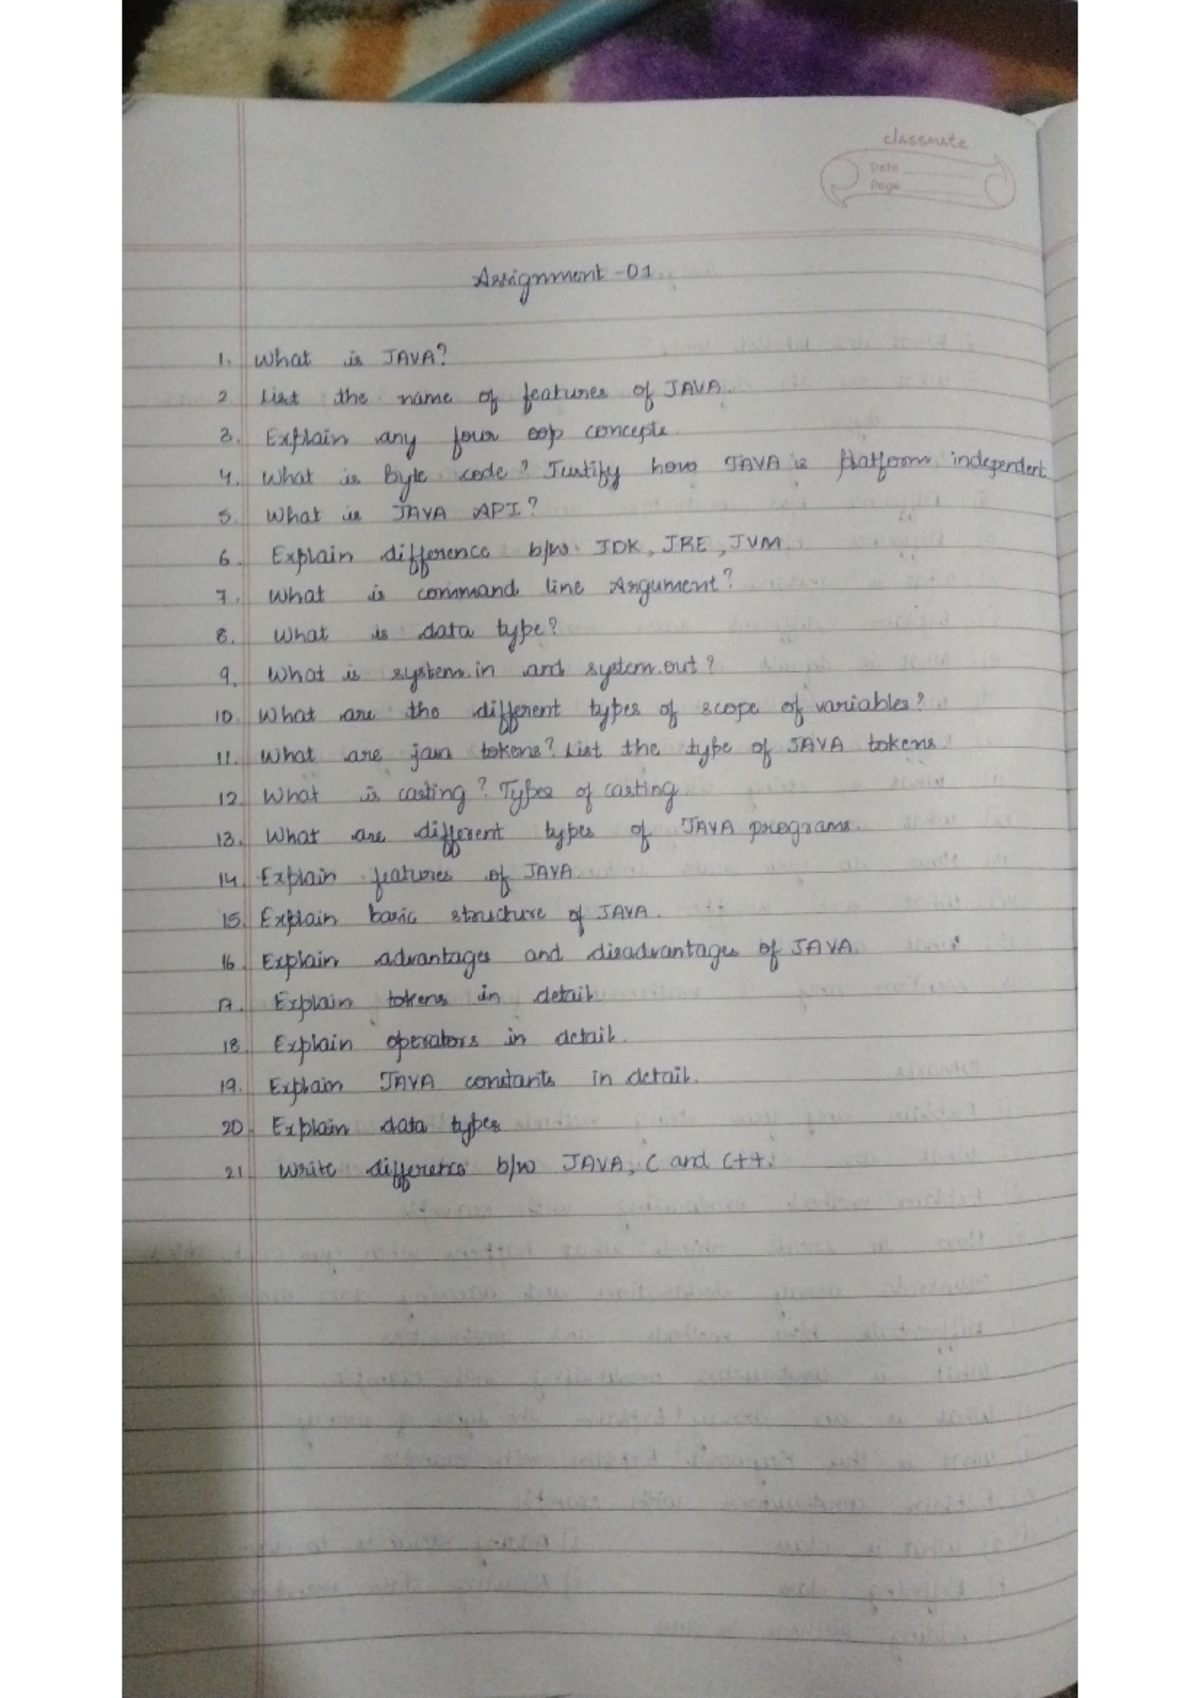 classmate
Date
Page
Assignment -01
1. What is JAVA?
2 List the name of features of JAVA.
3. Explain any four oop concepts.
4. What is Byte code? Justify how JAVA is platform independent
5. What is JAVA API?
6. Explain difference b/w JDK, JRE, JVM
7. What is command line Argument?
8. What is data type?
9. What is system.in and system.out?
10. What are the different types of scope of variables?
11. What are java tokens? List the type of JAVA tokens.
12. What is casting? Types of casting
13. What are different types of JAVA programs.
14. Explain features of JAVA
15. Explain basic structure of JAVA.
16. Explain advantages and disadvantages of JAVA.
17. Explain tokens in detail
18. Explain operators in detail.
19. Explain JAVA constants in detail.
20. Explain data types
21. Write difference b/w JAVA, C and C++.